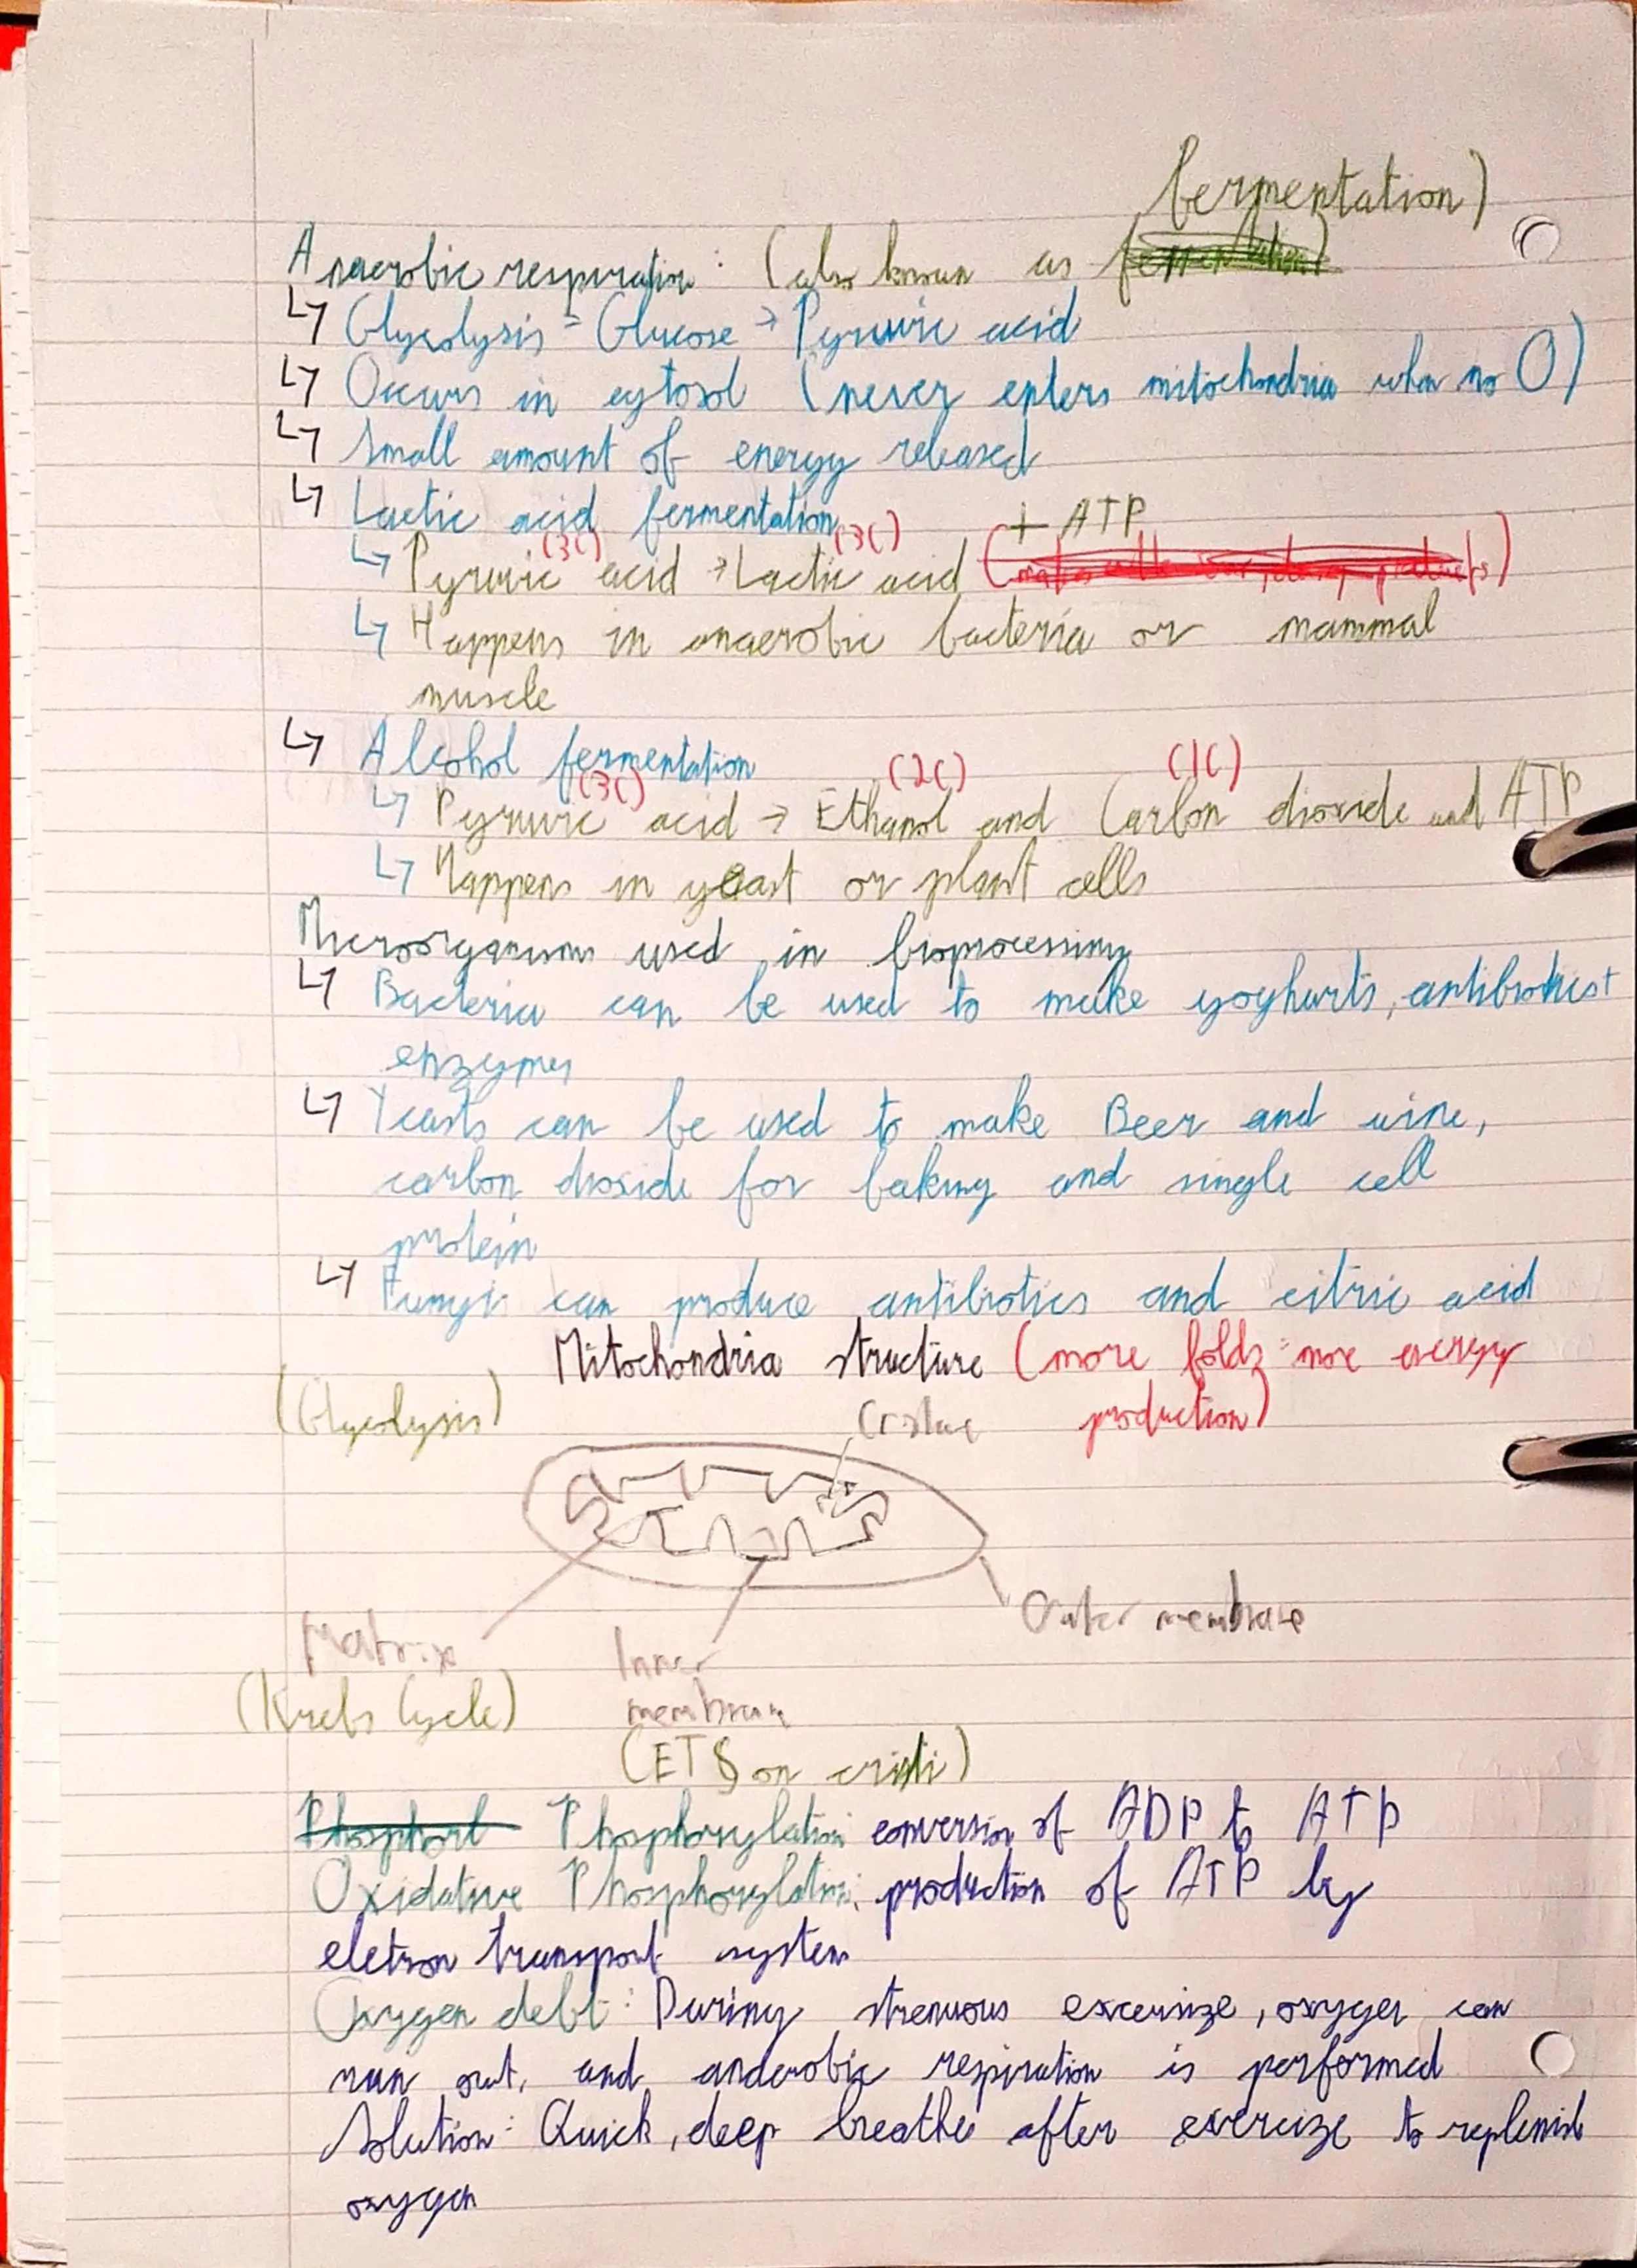 fermentation)
Anaerobic respiration: (also known as fermentation)
↳ Glycolysis = Glucose → Pyruvic acid
↳ Occurs in cytosol (never enters mitochondria when no O)
↳ Small amount of energy released
↳ Lactic acid fermentation
(3C) (3C) + ATP
↳ Pyruvic acid → Lactic acid
↳ Happens in anaerobic bacteria or mammal
muscle
↳ Alcohol fermentation
(3C) (2C) (1C)
↳ Pyruvic acid → Ethanol and Carbon dioxide and ATP
↳ Happens in yeast or plant cells
Microorganisms used in bioprocessing
↳ Bacteria can be used to make yoghurts, antibiotics +
enzymes
↳ Yeasts can be used to make Beer and wine,
carbon dioxide for baking and single cell
protein
↳ Fungi can produce antibiotics and citric acid
Mitochondria structure (more folds = more energy
production)
(Glycolysis)
Cristae
Outer membrane
Matrix
Inner
membrane
(Krebs Cycle)
(ETS on cristi)
Phosphorl Phosphorylation: conversion of ADP to ATP
Oxidative Phosphorylation: production of ATP by
eletron transport system
Oxygen debt: During strenuous excersize, oxygen can
run out, and anaerobic respiration is performed
Solution: Quick, deep breathe after exercize to replenish
oxygen